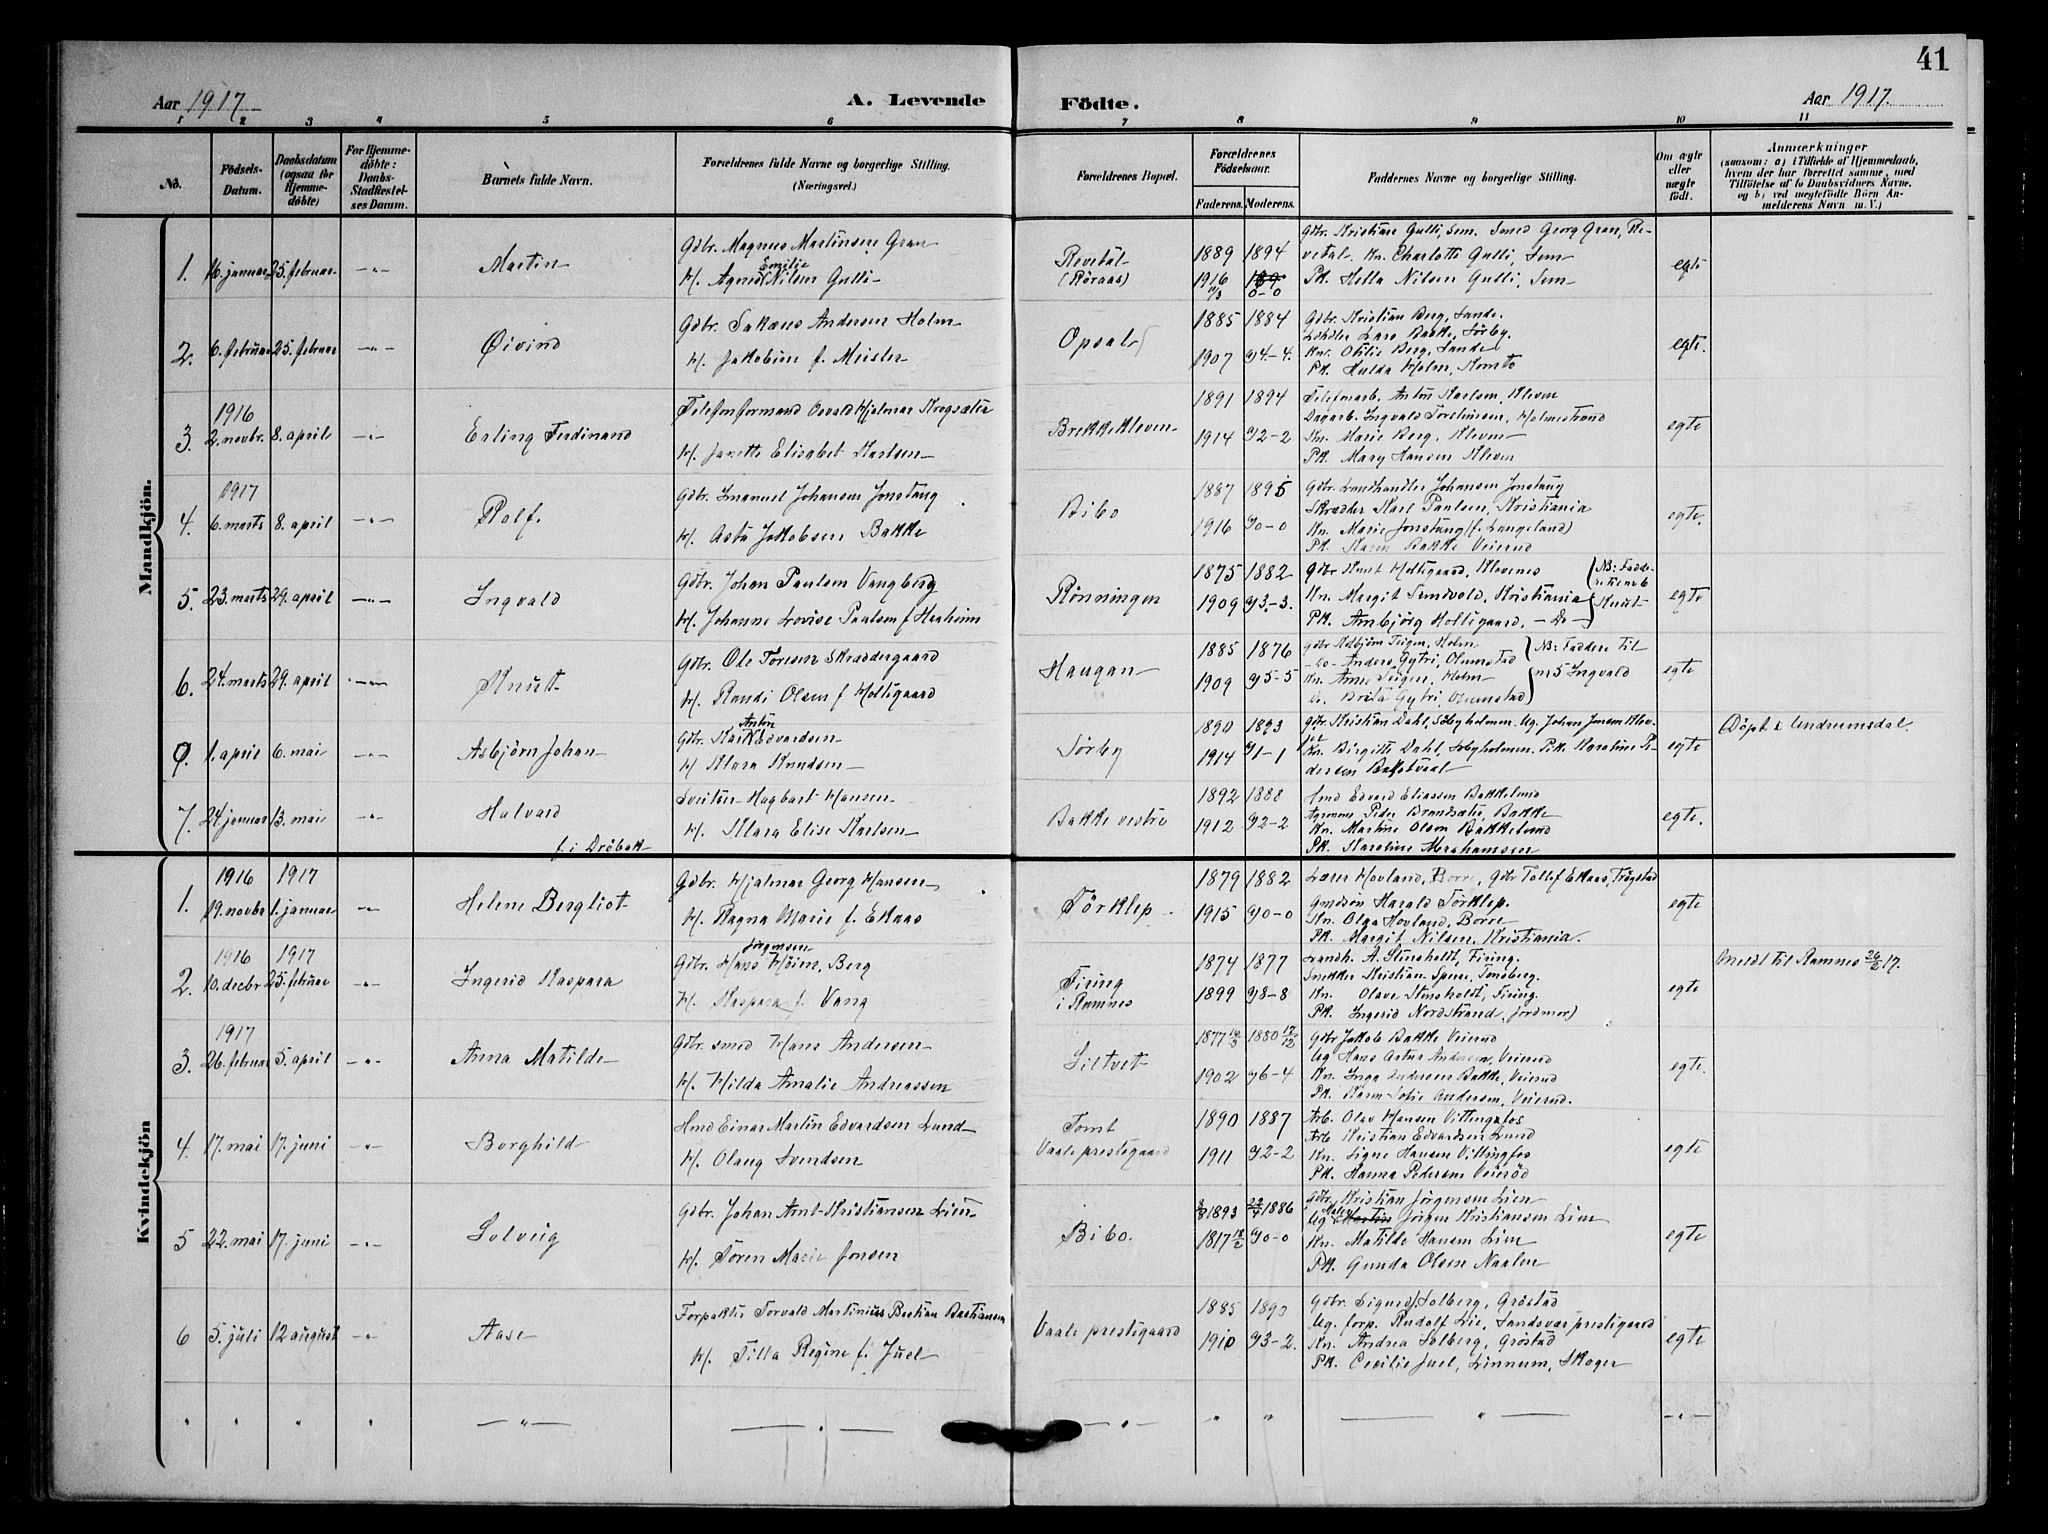 41
Aar 1917
A. Levende
Födte.
Aar 1917.
1 2 3 4 5 6 7 8 9 10 11
No.
Födsels-Datum.
Daabsdatum (ogsaa for Hjemme-döbte)
For Hjemme-döbte: Daabs-Stadfæstel-ses Datum.
Barnets fulde Navn.
Forældrenes fulde Navne og borgerlige Stilling.
(Næringsvei.)
Forældrenes Bopæl.
Forældrenes Födselsaar.
Faderens. Moderens.
Faddernes Navne og borgerlige Stilling.
Om ægte eller uægte födt.
Anmærkninger
(saasom: a) i Tilfælde af Hjemmedaab, hvem der har forrettet samme, med Tilföielse af to Daabsvidners Navne, og b) ved uægtefödte Börn Anmelderens Navn m. V.)
Mandkjön.
1. 16. januar 25. februar Martin
Gdbr. Magnus Martinsen Gran
H. Agnes Emilie Nilsen Gulli
Revetal (Röraas)
1889 1894
1916 11/3 0-0
Gdbr. Kristian Gulli, Sem. Smed Georg Gran, Re-
vetal. Kn. Charlotte Gulli, Sem
PK. Hella Nilsen Gulli, Sem
egte
2. 6. februar 25. februar Øivind
Gdbr. Sakæus Andersen Holm
H. Jakobine f. Meisler
Opsal
1885 1884
1907 g4-4.
Gdbr. Kristian Berg, Sande.
Lars Bakke, Sørby.
Kn. Otilie Berg, Sande
PK. Hulda Holm, Komto
egte.
3. 1916 2. novbr. 8. april Erling Ferdinand
Telefonformand Osvald Hjalmar Krogsæter
H. Janette Elisabet Karlsen
Brekkekleven
1891 1894
1914 g2-2
Telefonarb. Anton Karlsen, Kleven
Dagarb. Ingvald Torstensen, Holmestrand
Kn. Marie Berg, Kleven
PK. Mary Hansen Kleven
egte
4. 1917 6. marts 8. april Rolf.
Gdbr. Emanuel Johansen Jonstang
H. Asta Jakobsen Bakke
Bibo
1887 1895
1916 g0-0
Gdbr. Landhandler Johansen Jonstang
Skræder Karl Paulsen, Kristiania
Kn. Marie Jonstang (f. Langeland)
PK. Karen Bakke Veierud
egte.
5. 23. marts 29. april Ingvald
Gdbr. Johan Paulsen Vangberg
H. Johanne Lovise Paulsen f
Rønningen
1875 1882
1909 g3-3.
Gdbr Knut Holtigaard, Klevenes
Kn. Margit Sundvold, Kristiania
PK. Ambjørg Holtigaard, -Do-
NB: Fadde-
re til no 6
Knut
egte
6. 24. marts 29. april Knut
Gdbr. Ole Toresen Skraddergaard
H. Randi Olsen f Holtigaard
Haugan
1885 1876
1909 g5-5
Gdbr Asbjørn Teigen, Holm
-Do- Anders Gytri, Olumstad
Kn. Anne Teigen, Holm
Do. Brita Gytri, Olumstad
NB: Faddere til
nr 5 Ingvald
egte
0. 1. april 6. mai Asbjörn Johan
Gdbr. Karl Anton Edvardsen
H Klara Knudsen
Sørby
1890 1893
1914 g1-1
Gdbr. Kristian Dahl, Søbyholmen. Ug. Johan Jensen Klev-
jer
Kn. Birgitte Dahl, Søbyholmen. Pike Karoline Pe-
dersen
egte
Döpt i Undrumsdal.
7. 24. januar 13. mai Halvard
f. i Dröbak
Sveitser Hagbart Hansen
H. Klara Elise Karlsen
Bakke vestre
1892 1888
1912 g2-2
Hmd Edvard Eliassen Bakkelund
Peder Brandsæter, Bakke
Kn. Martine Olsen Bakkelund
PK. Karoline Abrahamsen
egte.
Kvindekjön
1. 1916 19. novbr 1917 1. januar Helene Bergliot
Gdbr. Hjalmar Georg Hansen
H. Ragna Marie f. Ekaas
Törklep
1879 1882
1915 g0-0
Lærer Hovland, Borre, Gdbr Tollef Ekaas, Trøgstad
Gmdsön Harald Törklep.
Kn. Olga Hovland, Borre
PK. Margit Nilsen, Kristiania.
egte
2. 1916 10. decbr 1917 25. februar Ingerid Kaspara
Gdbr. Hans Jörgensen Höien, Berg
H. Kaspara f. Vang
Firing i Ramnes
1874 1877
1899 g8-8
Landh. A. Stensholdt, Firing.
Snekker Kristian Spere, Tønsberg.
Kn. Olave Stensholdt, Firing.
PK. Ingerid Nordstrand, (jordmor)
egte
Meldt til Ramnes 26/2 17.
3. 1917 26. februar 5. april Anna Matilde
Gdbr. smed Hans Andersen
H. Hilda Amalie Andreassen
Siltvet
1877 1880
1902 g6-4
Gdbr Jakob Bakke Veierud
Ug Hans Artur Andersen, Veierud
Kn. Inga Andersen Bakke, Veierud
PK. Karen Sofie Andersen, Veierud.
egte.
4. 17. mai 17. juni Borghild
Hmd Einar Martin Edvardsen Lund
H. Olaug Svendsen
Tomt
Vaale prestegaard
1890 1887
1911 g2-2
Arb. Olav Hansen Vittingsfos
Arb Kristian Edvardsen Lund
Kn. Signe Hansen Vittingfos
PK. Hanna Pedersen Veieröd
egte
5 22. mai 17. juni Solveig
Gdbr. Johan Arnt Kristiansen Lien
H. Tören Marie Jonsen
Bibo.
1893 1886
1817 g0-0
Gdbr. Kristian Jörgensen Lien
Ug Martin Jörgen Kristiansen Lien
Kn. Matilde Hansen Lien
PK. Gunda Olsen Naalen
egte
6 5. juli 12 august Aase
Forpakter Torvald Martinius Bastian Bastiansen
H. Tilla Regine f. Juel
Vaale prestegaard
1885 1890
1910 g3-2.
Gdbr. Sigurd Solberg, Gröstad
Ug. forp. Rudolf Lie, Sandsvær prestegaard
Kn. Andrea Solberg, Gröstad
PK. Cecilie Juel, Linnum, Skoger
egte